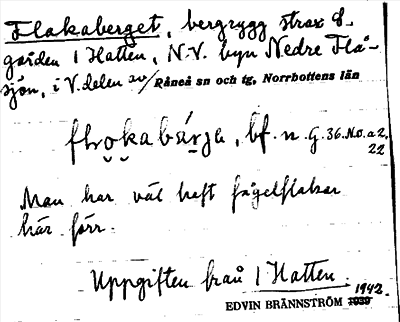 Flakaberget, bergrygg strax S.
gården 1 Hatten, N.V. byn Nedre Flå-
sjön, i V. delen av / Råneå sn och tg, Norrbottens län
bf. n. G. 36. No. a 2,
22
Man har väl haft fågelflakar
här förr.
Uppgiften från 1 Hatten.
1942.
EDVIN BRÄNNSTRÖM 1939